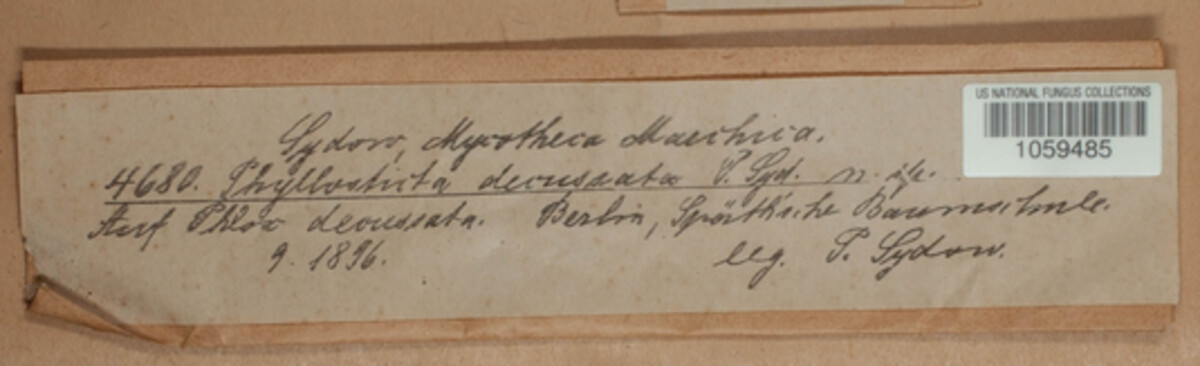 Sydow, Mycotheca Marchica.
4680. Phyllosticta decussata P. Syd. n. sp.
Auf Phlox decussata. Berlin, Späth'sche Baumschule.
9. 1896. leg. P. Sydow.
US NATIONAL FUNGUS COLLECTIONS
1059485